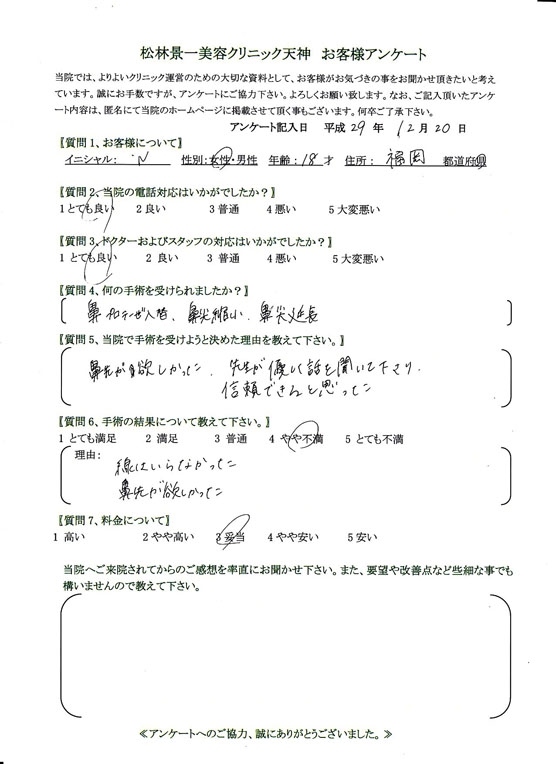 松林景一美容クリニック天神　お客様アンケート
当院では、よりよいクリニック運営のための大切な資料として、お客様がお気づきの事をお聞かせ頂きたいと考え
ています。誠にお手数ですが、アンケートにご協力下さい。よろしくお願い致します。なお、ご記入頂いたアンケ
ート内容は、匿名にて当院のホームページに掲載させて頂く事もございます。何卒ご了承下さい。
アンケート記入日　平成29年 12月20日
【質問1、お客様について】
イニシャル： N　性別：女性・男性　年齢：18才　住所： 福岡　都道府県
【質問2、当院の電話対応はいかがでしたか？】
1とても良い　2良い　3普通　4悪い　5大変悪い
【質問3、ドクターおよびスタッフの対応はいかがでしたか？】
1とても良い　2良い　3普通　4悪い　5大変悪い
【質問4、何の手術を受けられましたか？】
鼻プロテーゼ入替、鼻尖縮小、鼻尖延長
【質問5、当院で手術を受けようと決めた理由を教えて下さい。】
鼻先が欲しかった、先生が優しく話を聞いて下さり、
信頼できると思った
【質問6、手術の結果について教えて下さい。】
1とても満足　2満足　3普通　4やや不満　5とても不満
理由：
線はいらなかった
鼻先が欲しかった
【質問7、料金について】
1高い　2やや高い　3妥当　4やや安い　5安い
当院へご来院されてからのご感想を率直にお聞かせ下さい。また、要望や改善点など些細な事でも
構いませんので教えて下さい。
≪アンケートへのご協力、誠にありがとうございました。≫